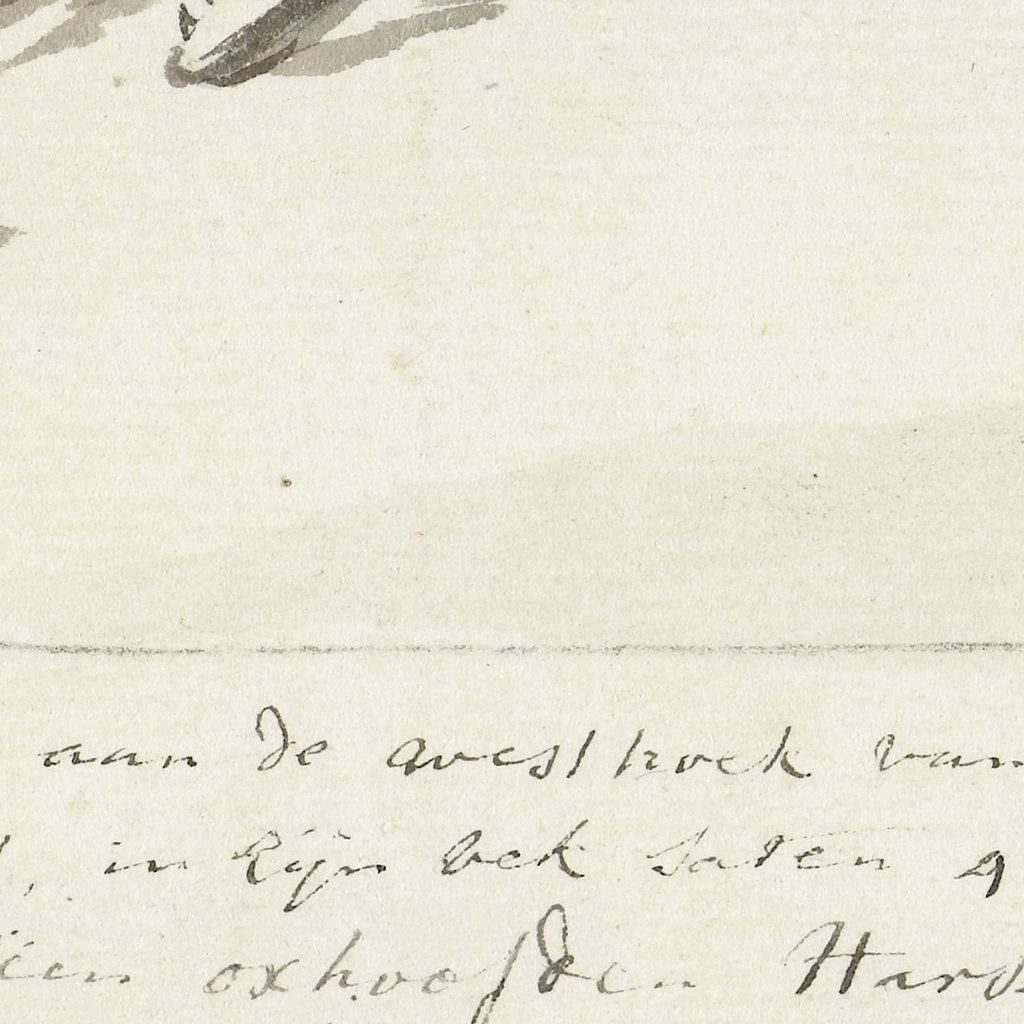 aan de westhoek van
, in zijn bek saten 9
oxhoofden Hard